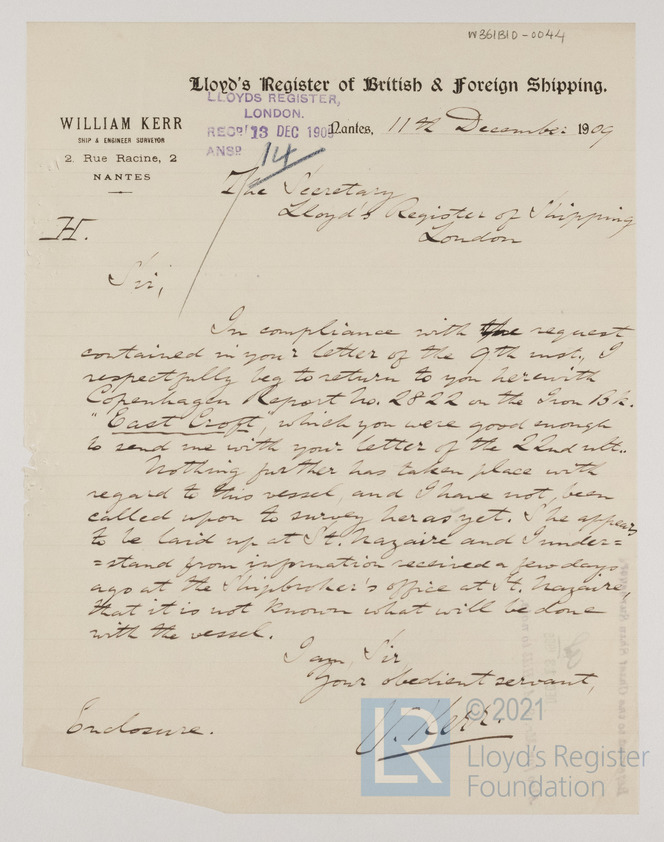 W361B10-0044
Lloyd's Register of British & Foreign Shipping.
LLOYDS REGISTER,
LONDON.
RECD 13 DEC 1909
ANSD 14
WILLIAM KERR
SHIP & ENGINEER SURVEYOR
2. Rue Racine, 2
NANTES
Nantes, 11th December 1909
The Secretary
Lloyd's Register of Shipping
London
H.
Sir,
In compliance with the request
contained in your letter of the 9th inst., I
respectfully beg to return to you herewith
Copenhagen Report No. 2822 on the Iron Bk.
"East Croft", which you were good enough
to send me with your letter of the 22nd ult..
Nothing further has taken place with
regard to this vessel, and I have not been
called upon to survey her as yet. She appears
to be laid up at St. Nazaire and I under=
=stand from information received a few days
ago at the Shipbroker's office at St. Nazaire,
that it is not known what will be done
with the vessel.
I am, Sir
Your obedient servant,
W. Kerr.
Enclosure.
© 2021
LR
Lloyd's Register
Foundation